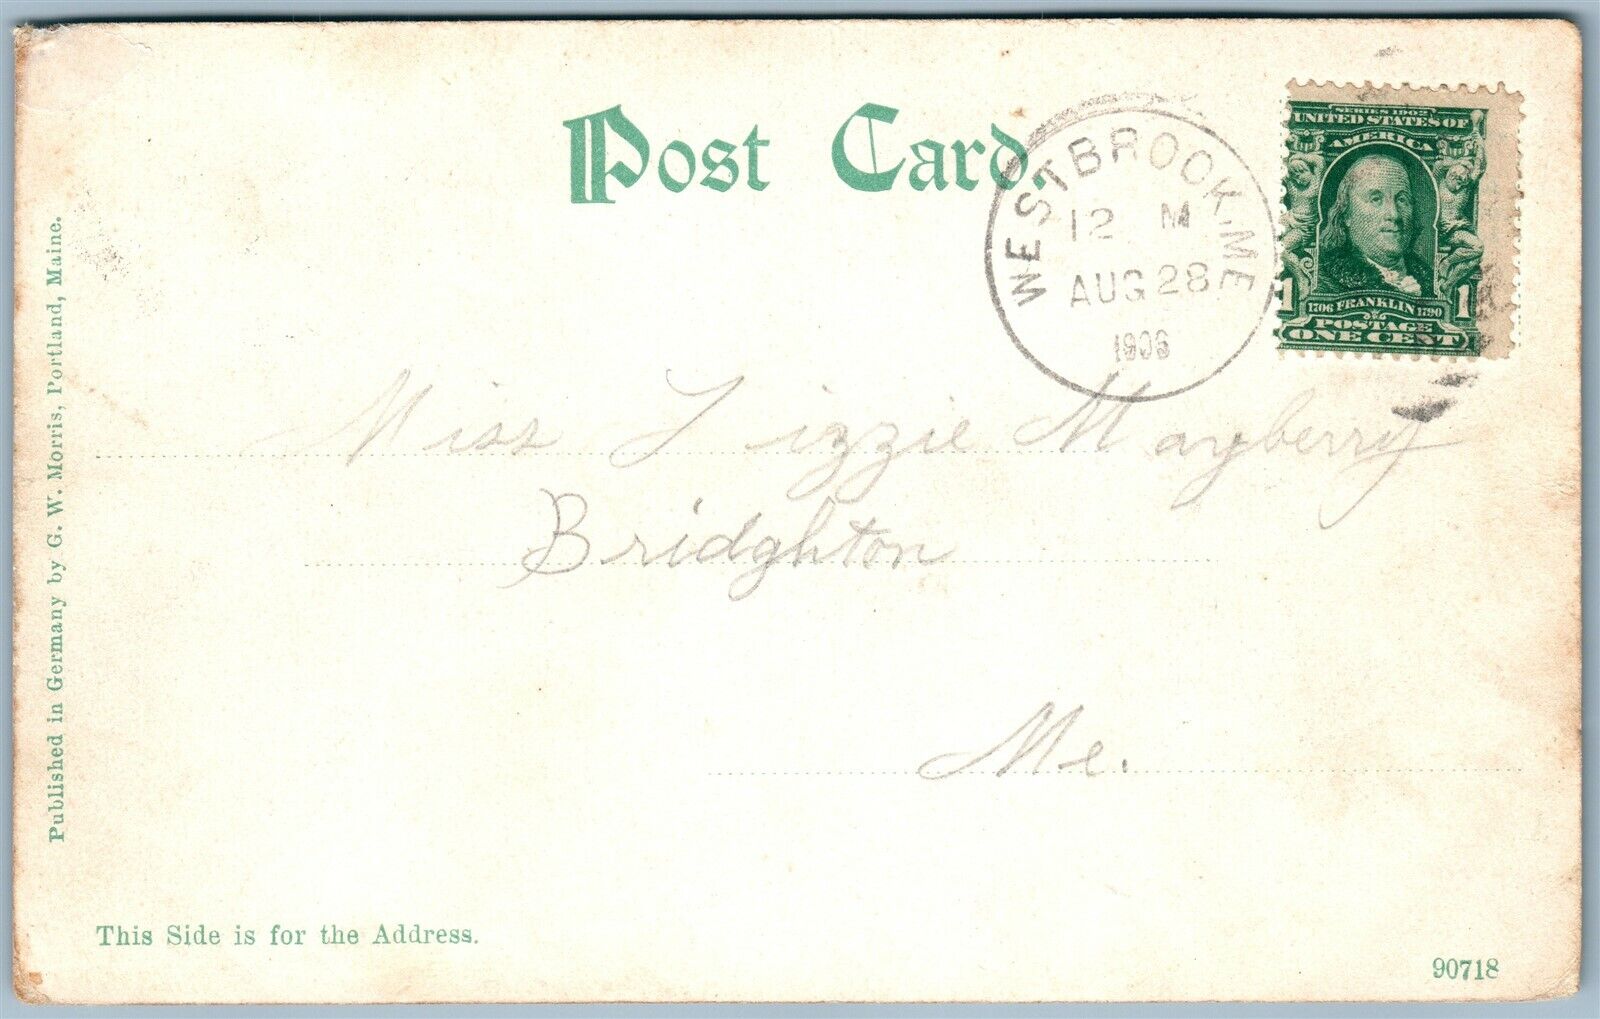 Post Card.
WESTBROOK, ME
12 M
AUG 28
1906
SERIES 1902
UNITED STATES OF
AMERICA
1706 FRANKLIN 1790
1 1
POSTAGE
ONE CENT
Miss Lizzie Mayberry
Bridghton
Me.
Published in Germany by G. W. Morris, Portland, Maine.
This Side is for the Address.
90718